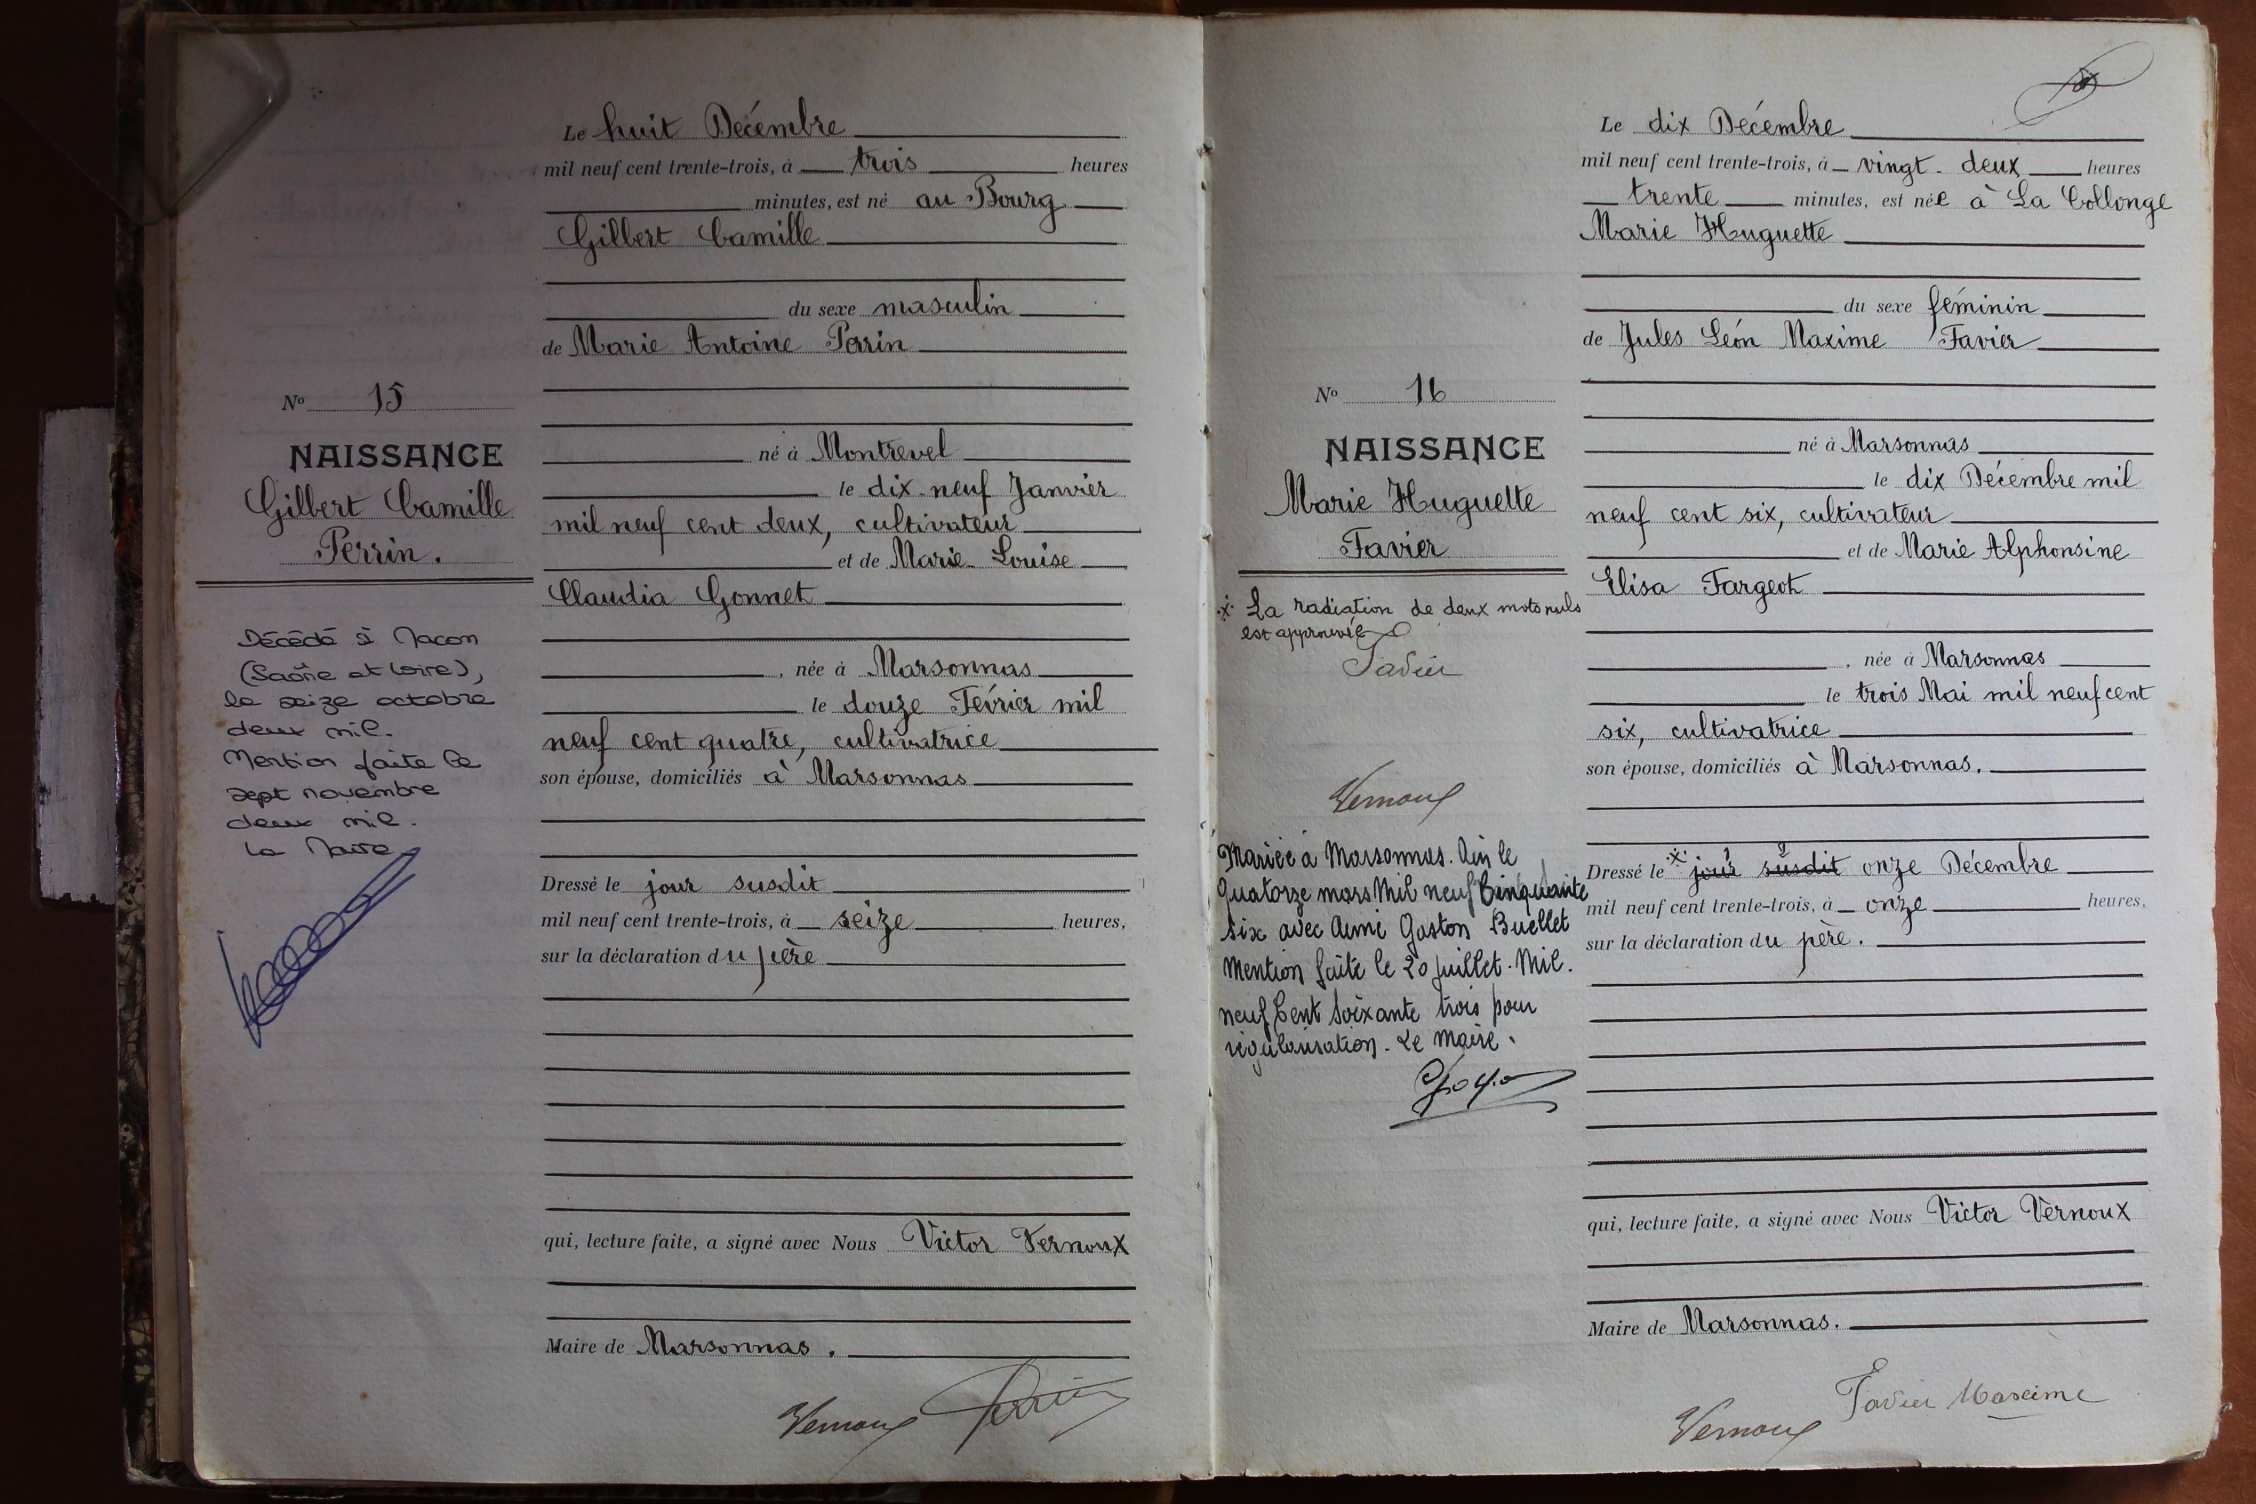 Le huit Décembre
mil neuf cent trente-trois, à trois heures
minutes, est né au Bourg
Gilbert Camille
du sexe masculin
de Marie Antoine Perrin
né à Montrevel
le dix-neuf Janvier
mil neuf cent deux, cultivateur
et de Marie-Louise
Claudia Gonnet
, née à Marsonnas
le douze Février mil
neuf cent quatre, cultivatrice
son épouse, domiciliés à Marsonnas
Dressé le jour susdit
mil neuf cent trente-trois, à seize heures,
sur la déclaration du père
qui, lecture faite, a signé avec Nous Victor Vernoux
Maire de Marsonnas.
Vernoux Perrin
No 15
NAISSANCE
Gilbert Camille
Perrin.
Décédé à Macon
(Saône et Loire),
le seize octobre
deux mil.
Mention faite le
sept novembre
deux mil.
Le Maire
Le dix Décembre
mil neuf cent trente-trois, à vingt-deux heures
trente minutes, est née à La Collonge
Marie Huguette
du sexe féminin
de Jules Léon Maxime Favier
né à Marsonnas
le dix Décembre mil
neuf cent six, cultivateur
et de Marie Alphonsine
Elisa Fargeot
, née à Marsonnas
le trois Mai mil neuf cent
six, cultivatrice
son épouse, domiciliés à Marsonnas.
Dressé le jour susdit onze Décembre
mil neuf cent trente-trois, à onze heures,
sur la déclaration du père.
qui, lecture faite, a signé avec Nous Victor Vernoux
Maire de Marsonnas.
Vernoux Favier Maxime
No 16
NAISSANCE
Marie Huguette
Favier
La radiation de deux mots nuls
est approuvée
Favier
Vernoux
Mariée à Marsonnas. Ain le
Quatorze mars Mil neuf Cinquante
six avec Aimé Gaston Buellet
Mention faite le 20 juillet. Mil.
neuf Cent Soixante trois pour
régularisation. Le Maire.